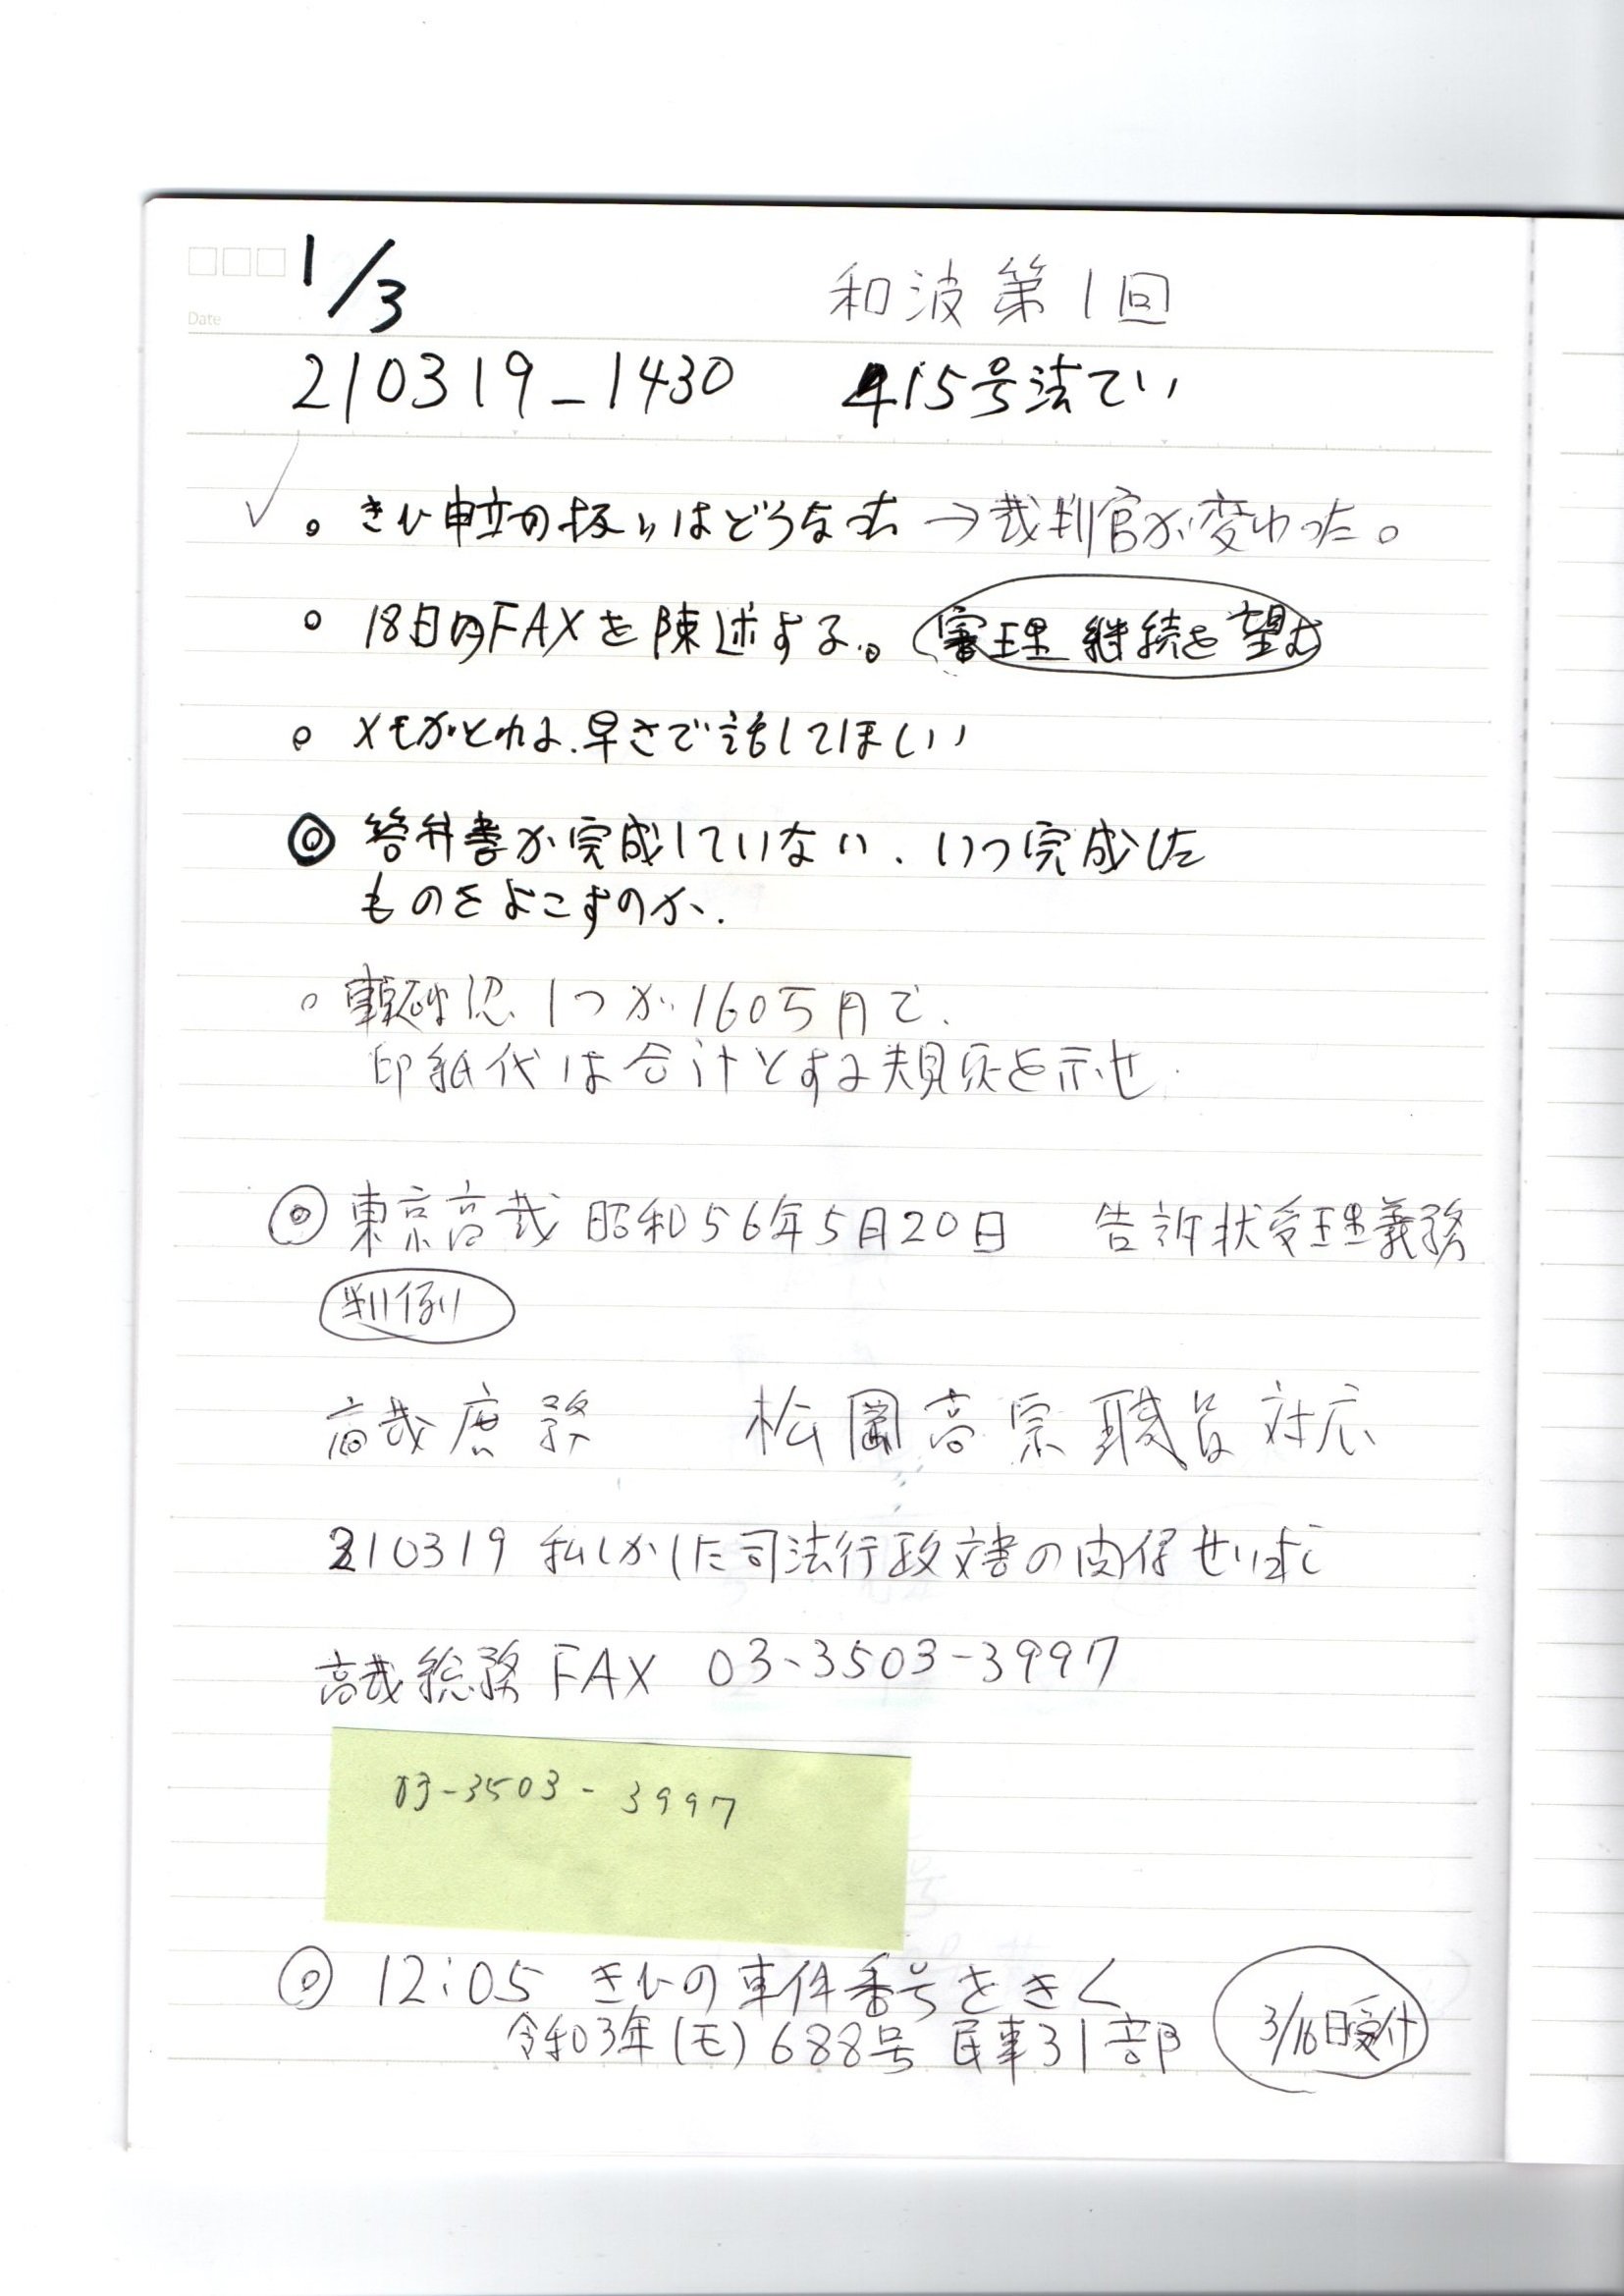 1/3
Date
和波第1回
210319_1430 415号法てい
✓
。きひ申立の扱いはどうなった →裁判官が変わった。
。18日のFAXを陳述する。(審理継続を望む
。メモがとれる.早さで話してほしい
◎ 答弁書が完成していない、いつ完成した
ものをよこすのか.
。確認 1つが160万円で、
印紙代は合計とする規定を示せ.
◎ 東京高裁 昭和56年5月20日 告訴状受理義務
判例
高裁庶務 松岡高宗職員対応
210319 司法行政文書の
高裁総務 FAX 03-3503-3997
03-3503-3997
◎ 12:05 きひの事件番号をきく
令和03年(モ)688号 民事31部
3/16日受付